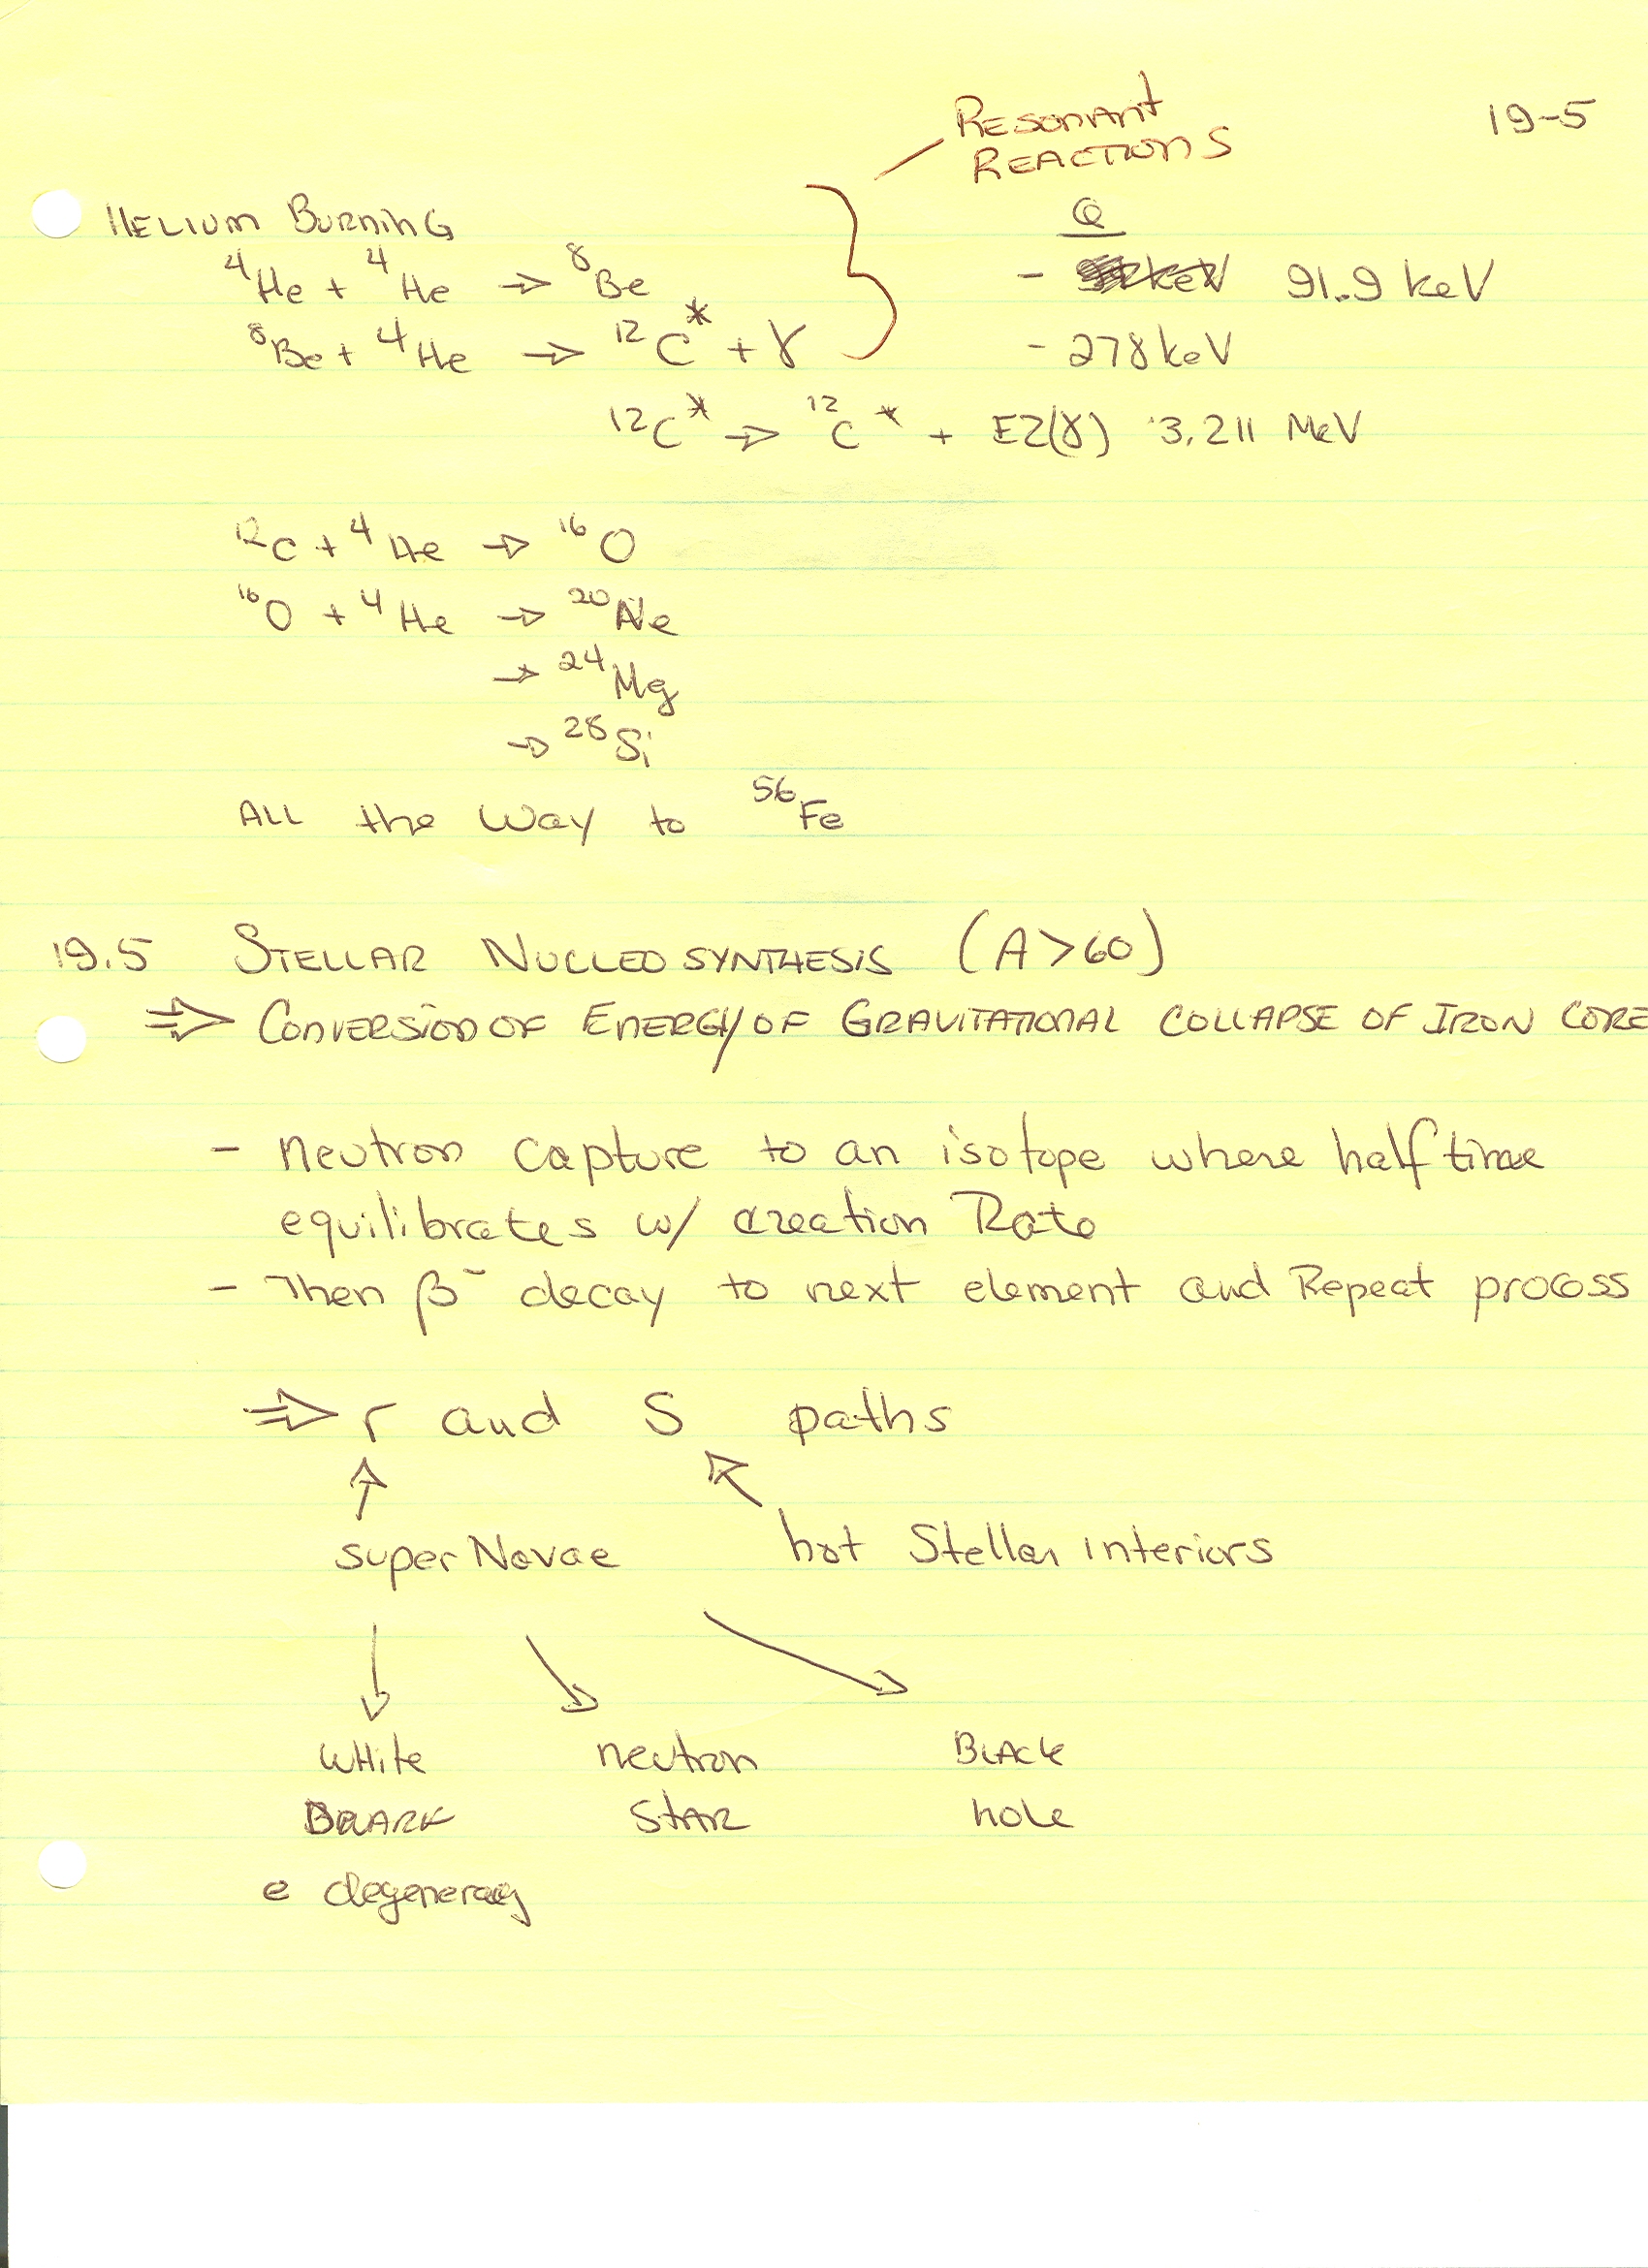 19-5
RESONANT
REACTIONS
HELIUM BURNING
Q
⁴He + ⁴He → ⁸Be - keV 91.9 keV
⁸Be + ⁴He → ¹²C* + γ - 278 keV
¹²C* → ¹²C* + E2(γ) 3.211 MeV
¹²C + ⁴He → ¹⁶O
¹⁶O + ⁴He → ²⁰Ne
→ ²⁴Mg
→ ²⁸Si
ALL the way to ⁵⁶Fe
19.5 STELLAR NUCLEOSYNTHESIS (A>60)
⇒ CONVERSION OF ENERGY OF GRAVITATIONAL COLLAPSE OF IRON CORE
- neutron capture to an isotope where half time
equilibrates w/ creation Rate
- Then β⁻ decay to next element and Repeat process
⇒ r and S paths
super Novae hot Stellar interiors
WHite neutron BLACK
STAR hole
e degeneracy